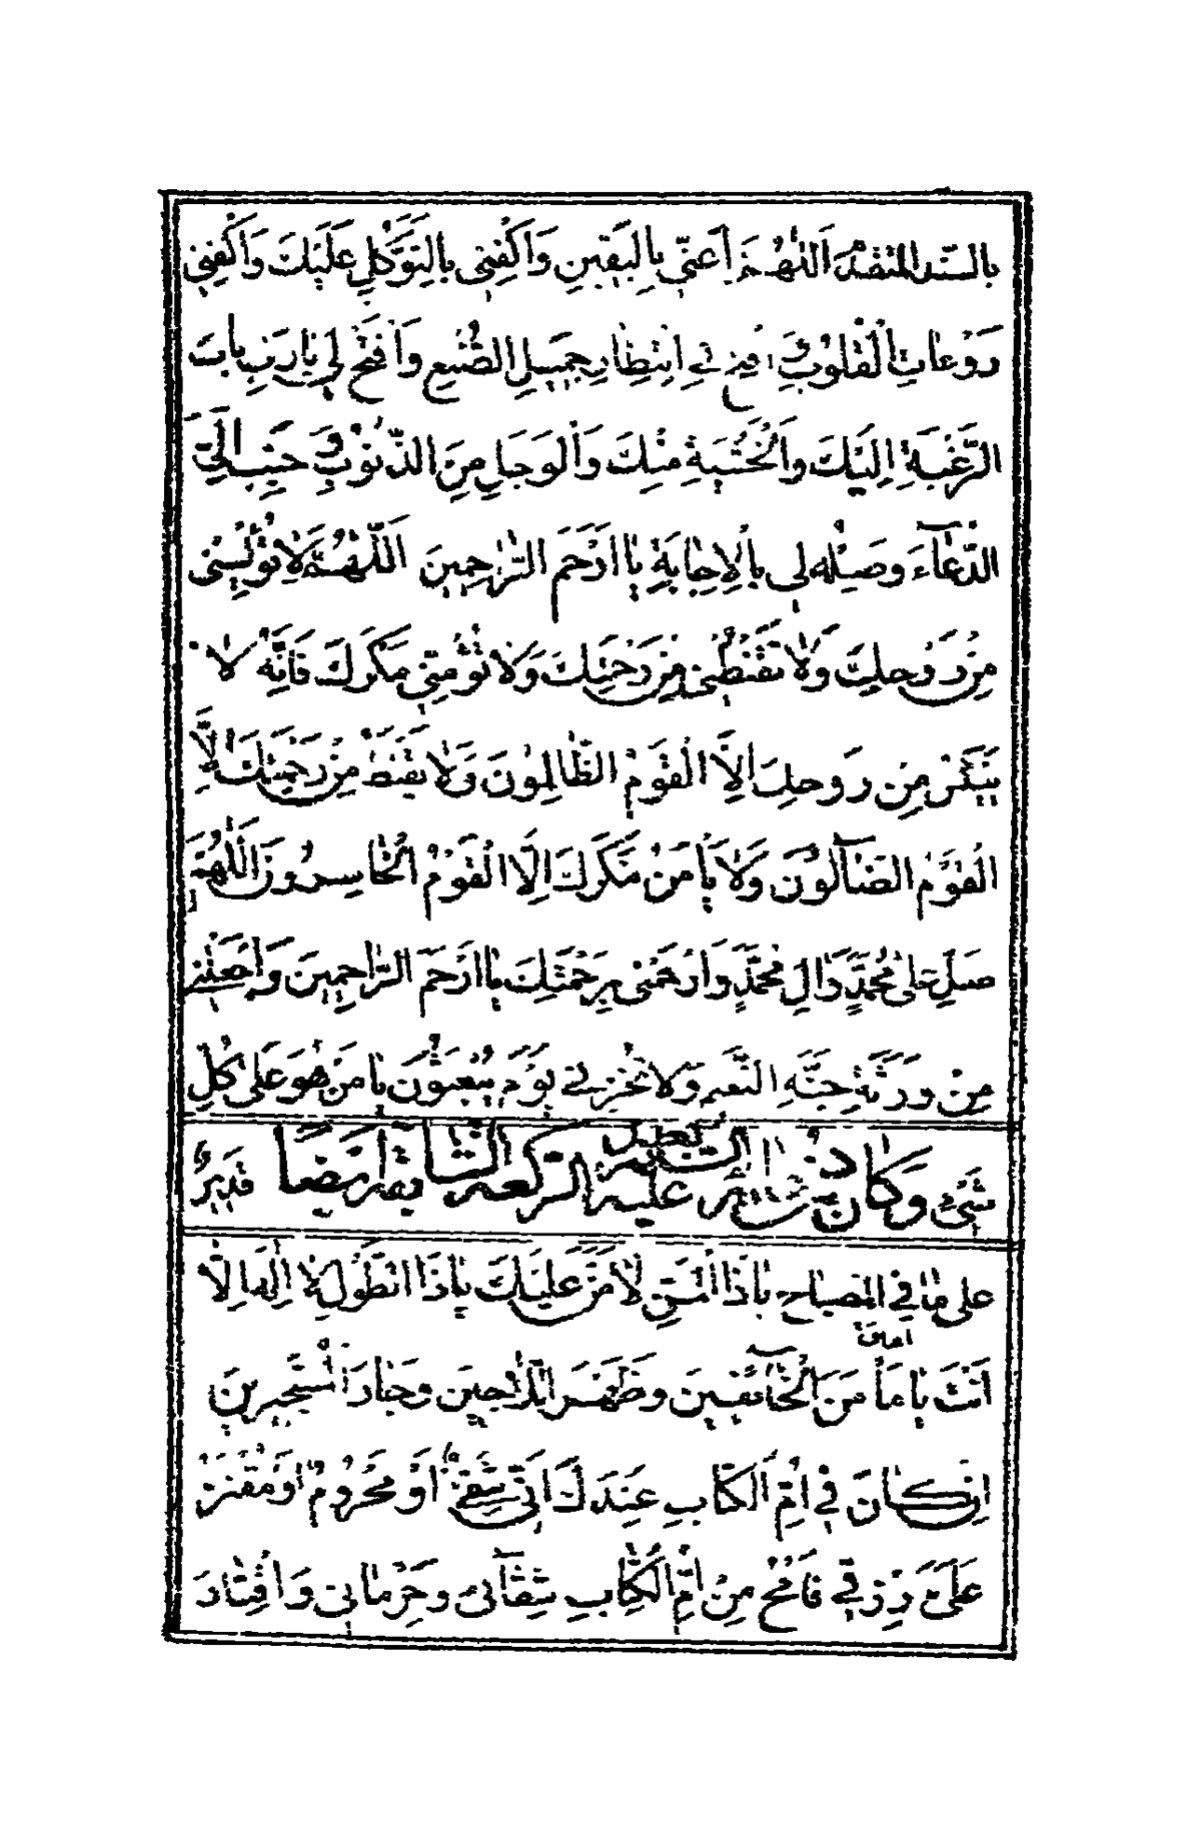 بِالسَّنَدِ المتقدم اَللّٰهُمَّ اَعِنّي بِالْيَقينِ وَاَكْفِني بِالتَّوَكُّلِ عَلَيْكَ وَاكْفِني
رَوْعاتِ الْقُلُوبِ في اِنْتِظارِ جَميلِ الصُّنْعِ وَافْتَحْ لي يا رَبِّ بابَ
الرَّغْبَةِ اِلَيْكَ وَالْخَشْيَةِ مِنْكَ وَالْوَجَلِ مِنَ الذُّنُوبِ وَحَبِّبْ اِلَيَّ
الدُّعآءَ وَصِلْهُ لي بِالْاِجابَةِ يا اَرْحَمَ الرّاحِمينَ اَللّٰهُمَّ لا تُؤْيِسْني
مِنْ رَوْحِكَ وَلا تُقَنِّطْني مِنْ رَحْمَتِكَ وَلا تُؤْمِنّي مَكْرَكَ فَاِنَّهُ لا
يَيْئَسُ مِنْ رَوْحِكَ اِلَّا الْقَوْمُ الظّالِمُونَ وَلا يَقْنَطُ مِنْ رَحْمَتِكَ اِلَّا
الْقَوْمُ الضّآلُّونَ وَلا يَاْمَنُ مَكْرَكَ اِلَّا الْقَوْمُ الْخاسِرُونَ اَللّٰهُمَّ
صَلِّ عَلٰى مُحَمَّدٍ وَالِ مُحَمَّدٍ وَارْحَمْني بِرَحْمَتِكَ يا اَرْحَمَ الرّاحِمينَ وَاجْعَلْني
مِنْ وَرَثَةِ جَنَّةِ النَّعيمِ وَلا تُخْزِني يَوْمَ يُبْعَثُونَ يا مَنْ هُوَ عَلٰى كُلِّ
شَيْءٍ قَديرٌ وكان الركعة الثانية ايضا
على ما في المصباح يا ذَا الْمَنِّ لا مَنَّ عَلَيْكَ يا ذَا الطَّوْلِ لا اِلٰهَ اِلَّا
اَنْتَ يا مَاْمَنَ الْخآئِفينَ وَظَهْرَ اللّاجينَ وَجارَ الْمُسْتَجيرينَ
اِنْ كانَ في اُمِّ الْكِتابِ عِنْدَكَ اَنّي شَقِيٌّ اَوْ مَحْرُومٌ اَوْ مُقْتَرٌ
عَلَيَّ رِزْقي فَامْحُ مِنْ اُمِّ الْكِتابِ شَقآئي وَحِرْماني وَاقْتِارَ